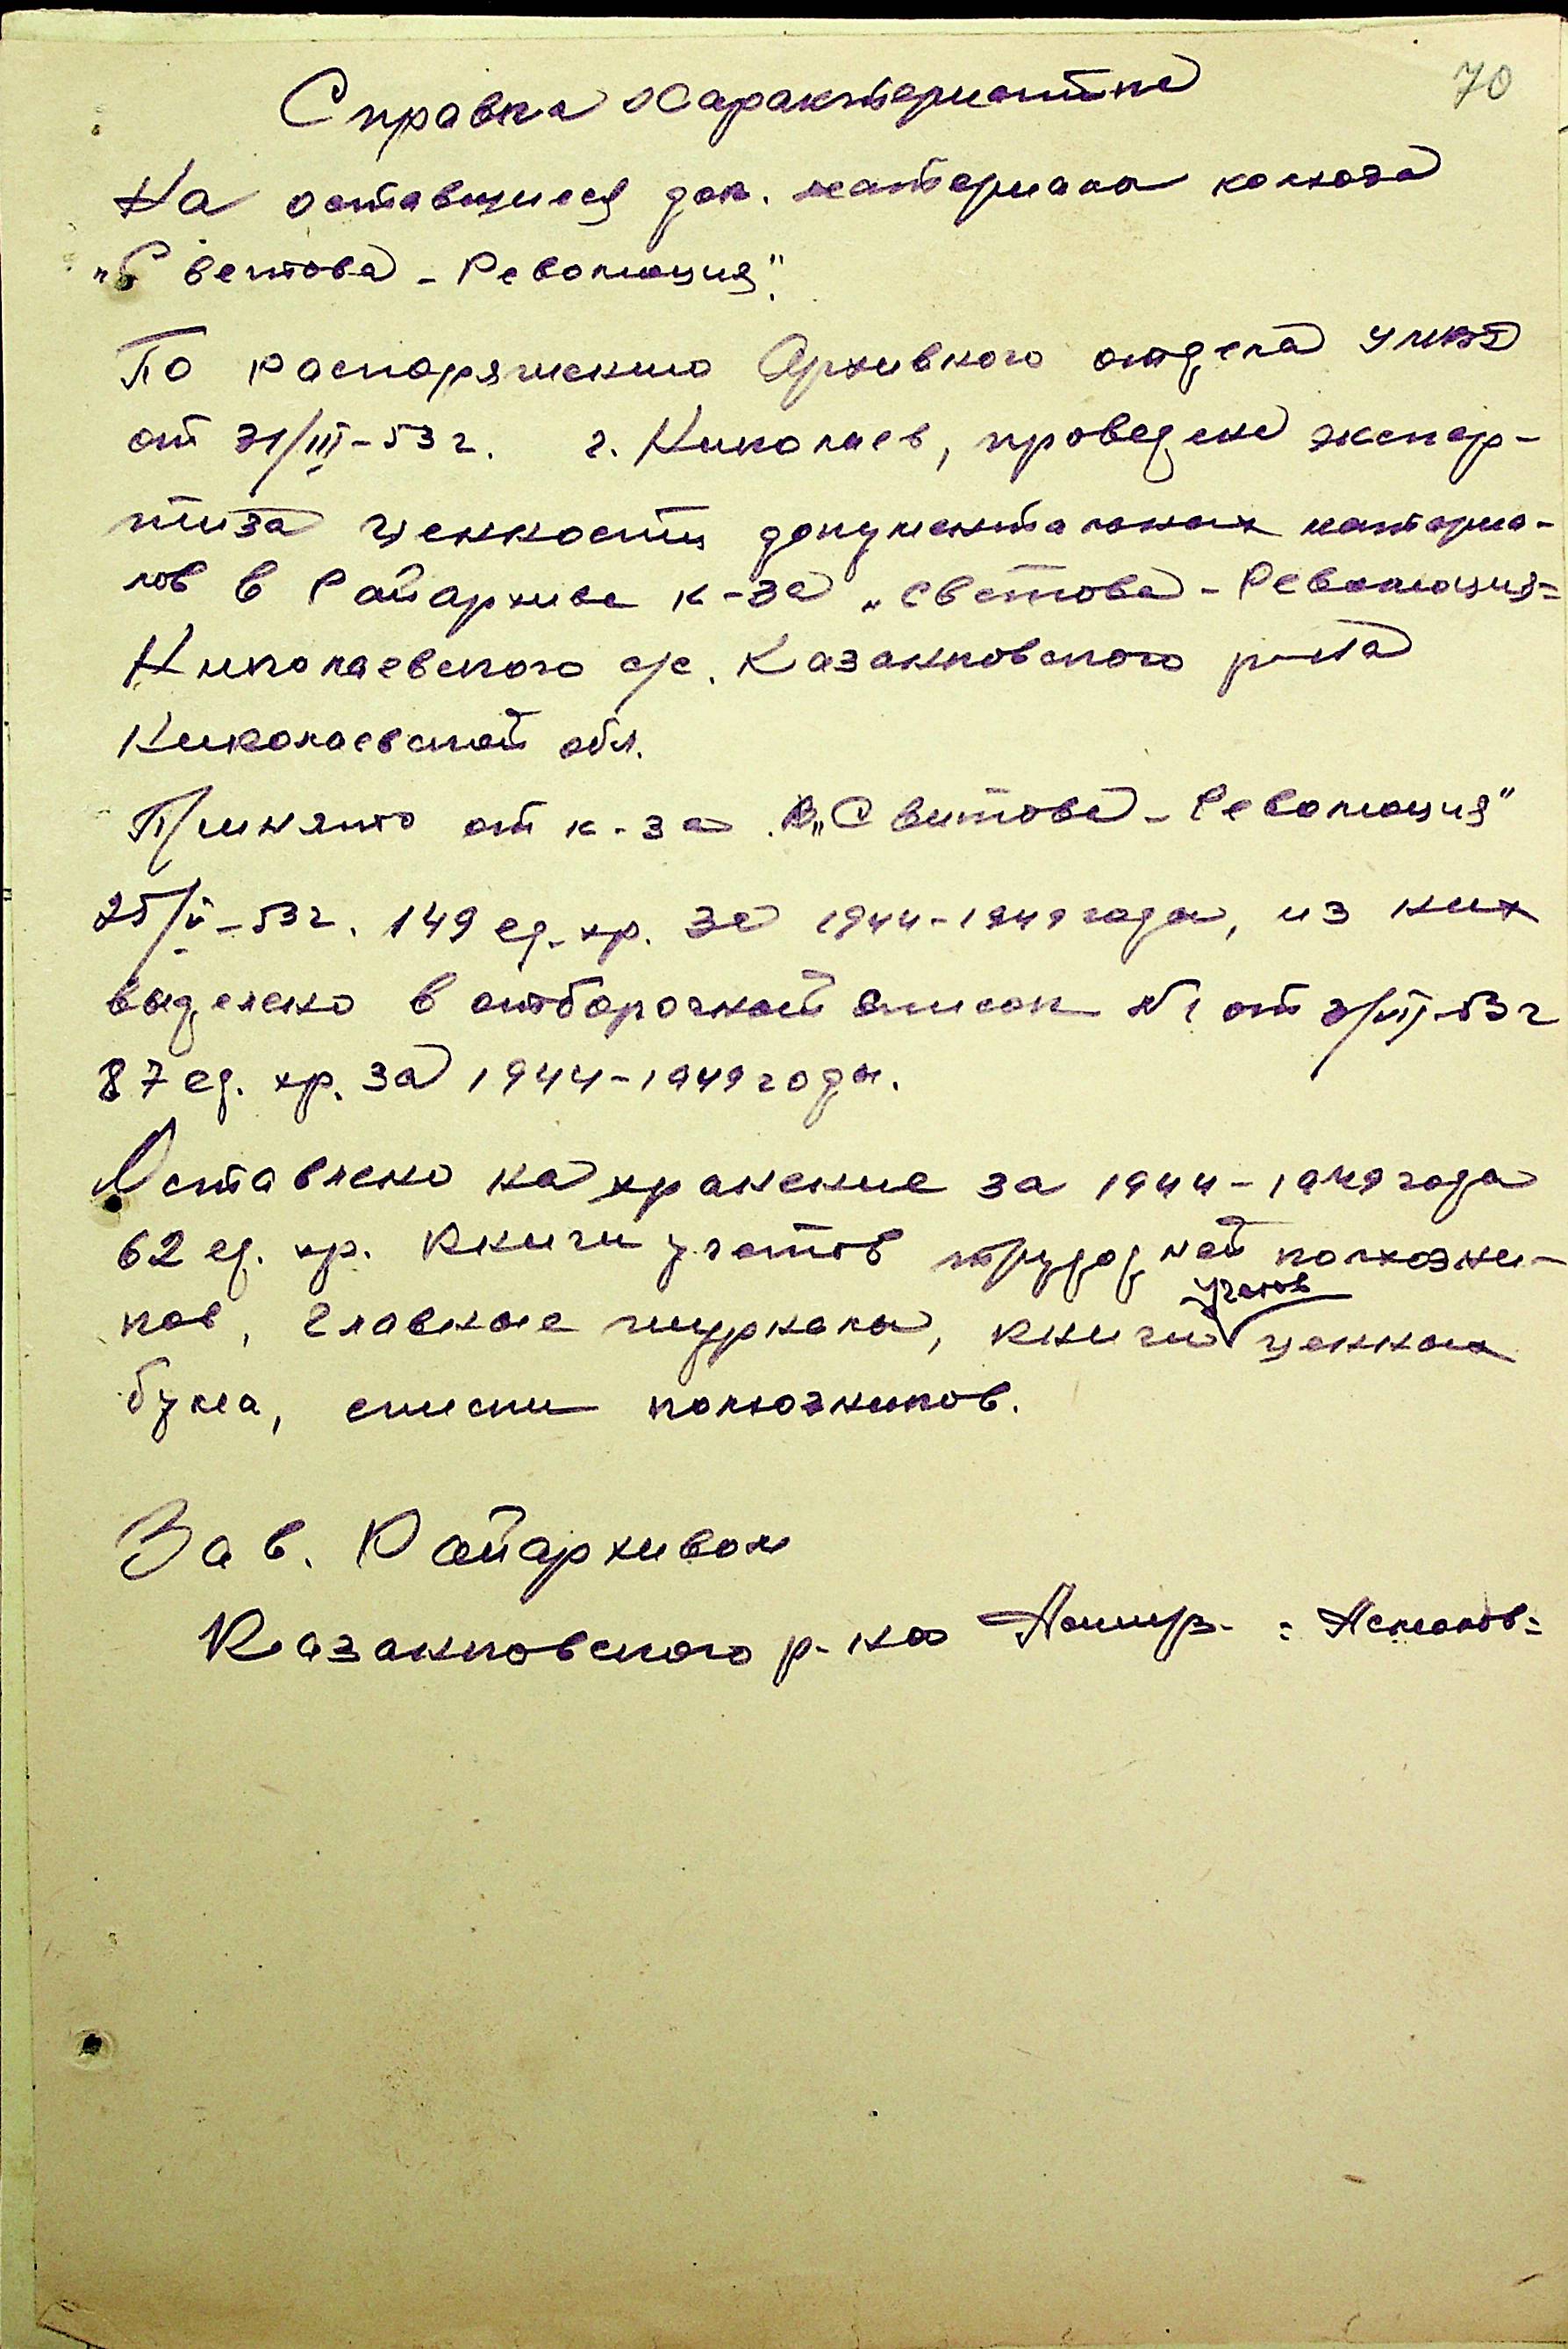 70
Справка Характеристика
На оставшиеся док. материалы колхоза
„Светова - Революция".
По распоряжению Архивного отдела УМВД
от 31/III-53 г. г. Николаев, проведена экспер-
тиза ценности документальных материа-
лов в Райархиве к-за „Светова - Революция=
Николаевского с/с. Казанковского р-на
Николаевской обл.
Принято от к-за „Свитова - Революция"
25/V-53 г. 149 ед. хр. за 1944-1949 годы, из них
выделено в отборочной список №1 от 3/VII-53 г
87 ед. хр. за 1944-1949 годы.
Оставлено на хранение за 1944-1949 года
62 ед. хр. Книги учетов трудодней колхозни-
ков, Главные журналы, книги учетов ценных
бумаг, списки колхозников.
Зав. Райархивом
Казанковского р-на